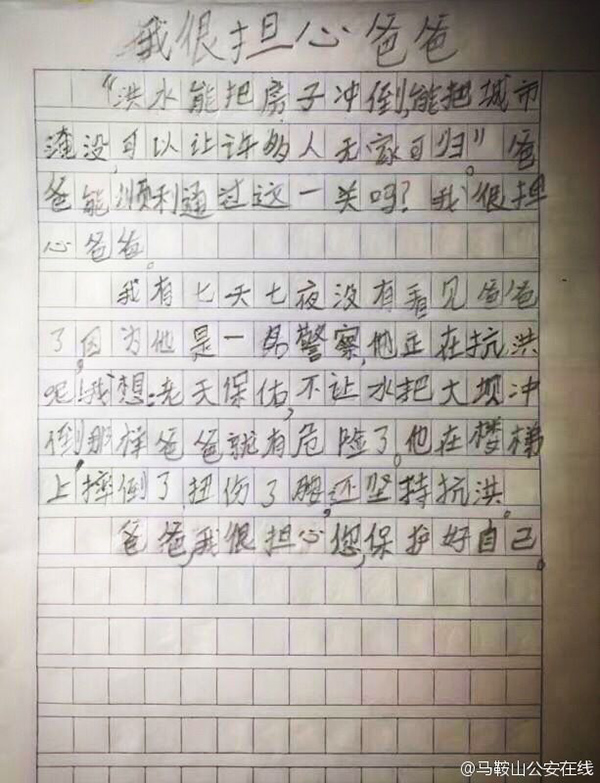 我很担心爸爸
“洪水能把房子冲倒,能把城市
淹没,可以让许多人无家可归”。爸
爸能顺利通过这一关吗?我很担
心爸爸。
我有七天七夜没有看见爸爸
了,因为他是一名警察,他正在抗洪
呢!我想:老天保佑,不让水把大坝冲
倒,那样爸爸就有危险了。他在楼梯
上摔倒了,扭伤了腰,还坚持抗洪。
爸爸,我很担心您,保护好自己。
@马鞍山公安在线